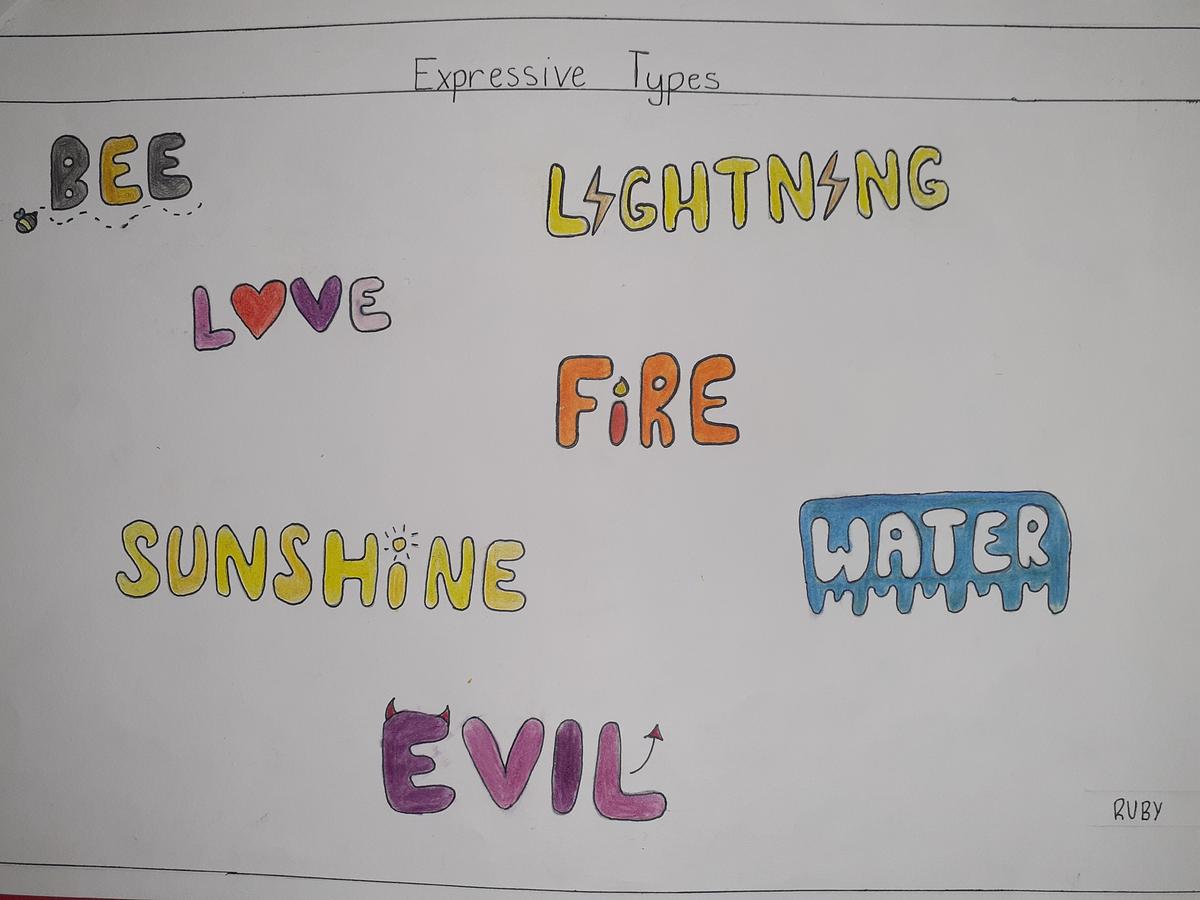 Expressive Types
BEE
LIGHTNING
LOVE
FiRE
SUNSHiNE
WATER
EVIL
RUBY